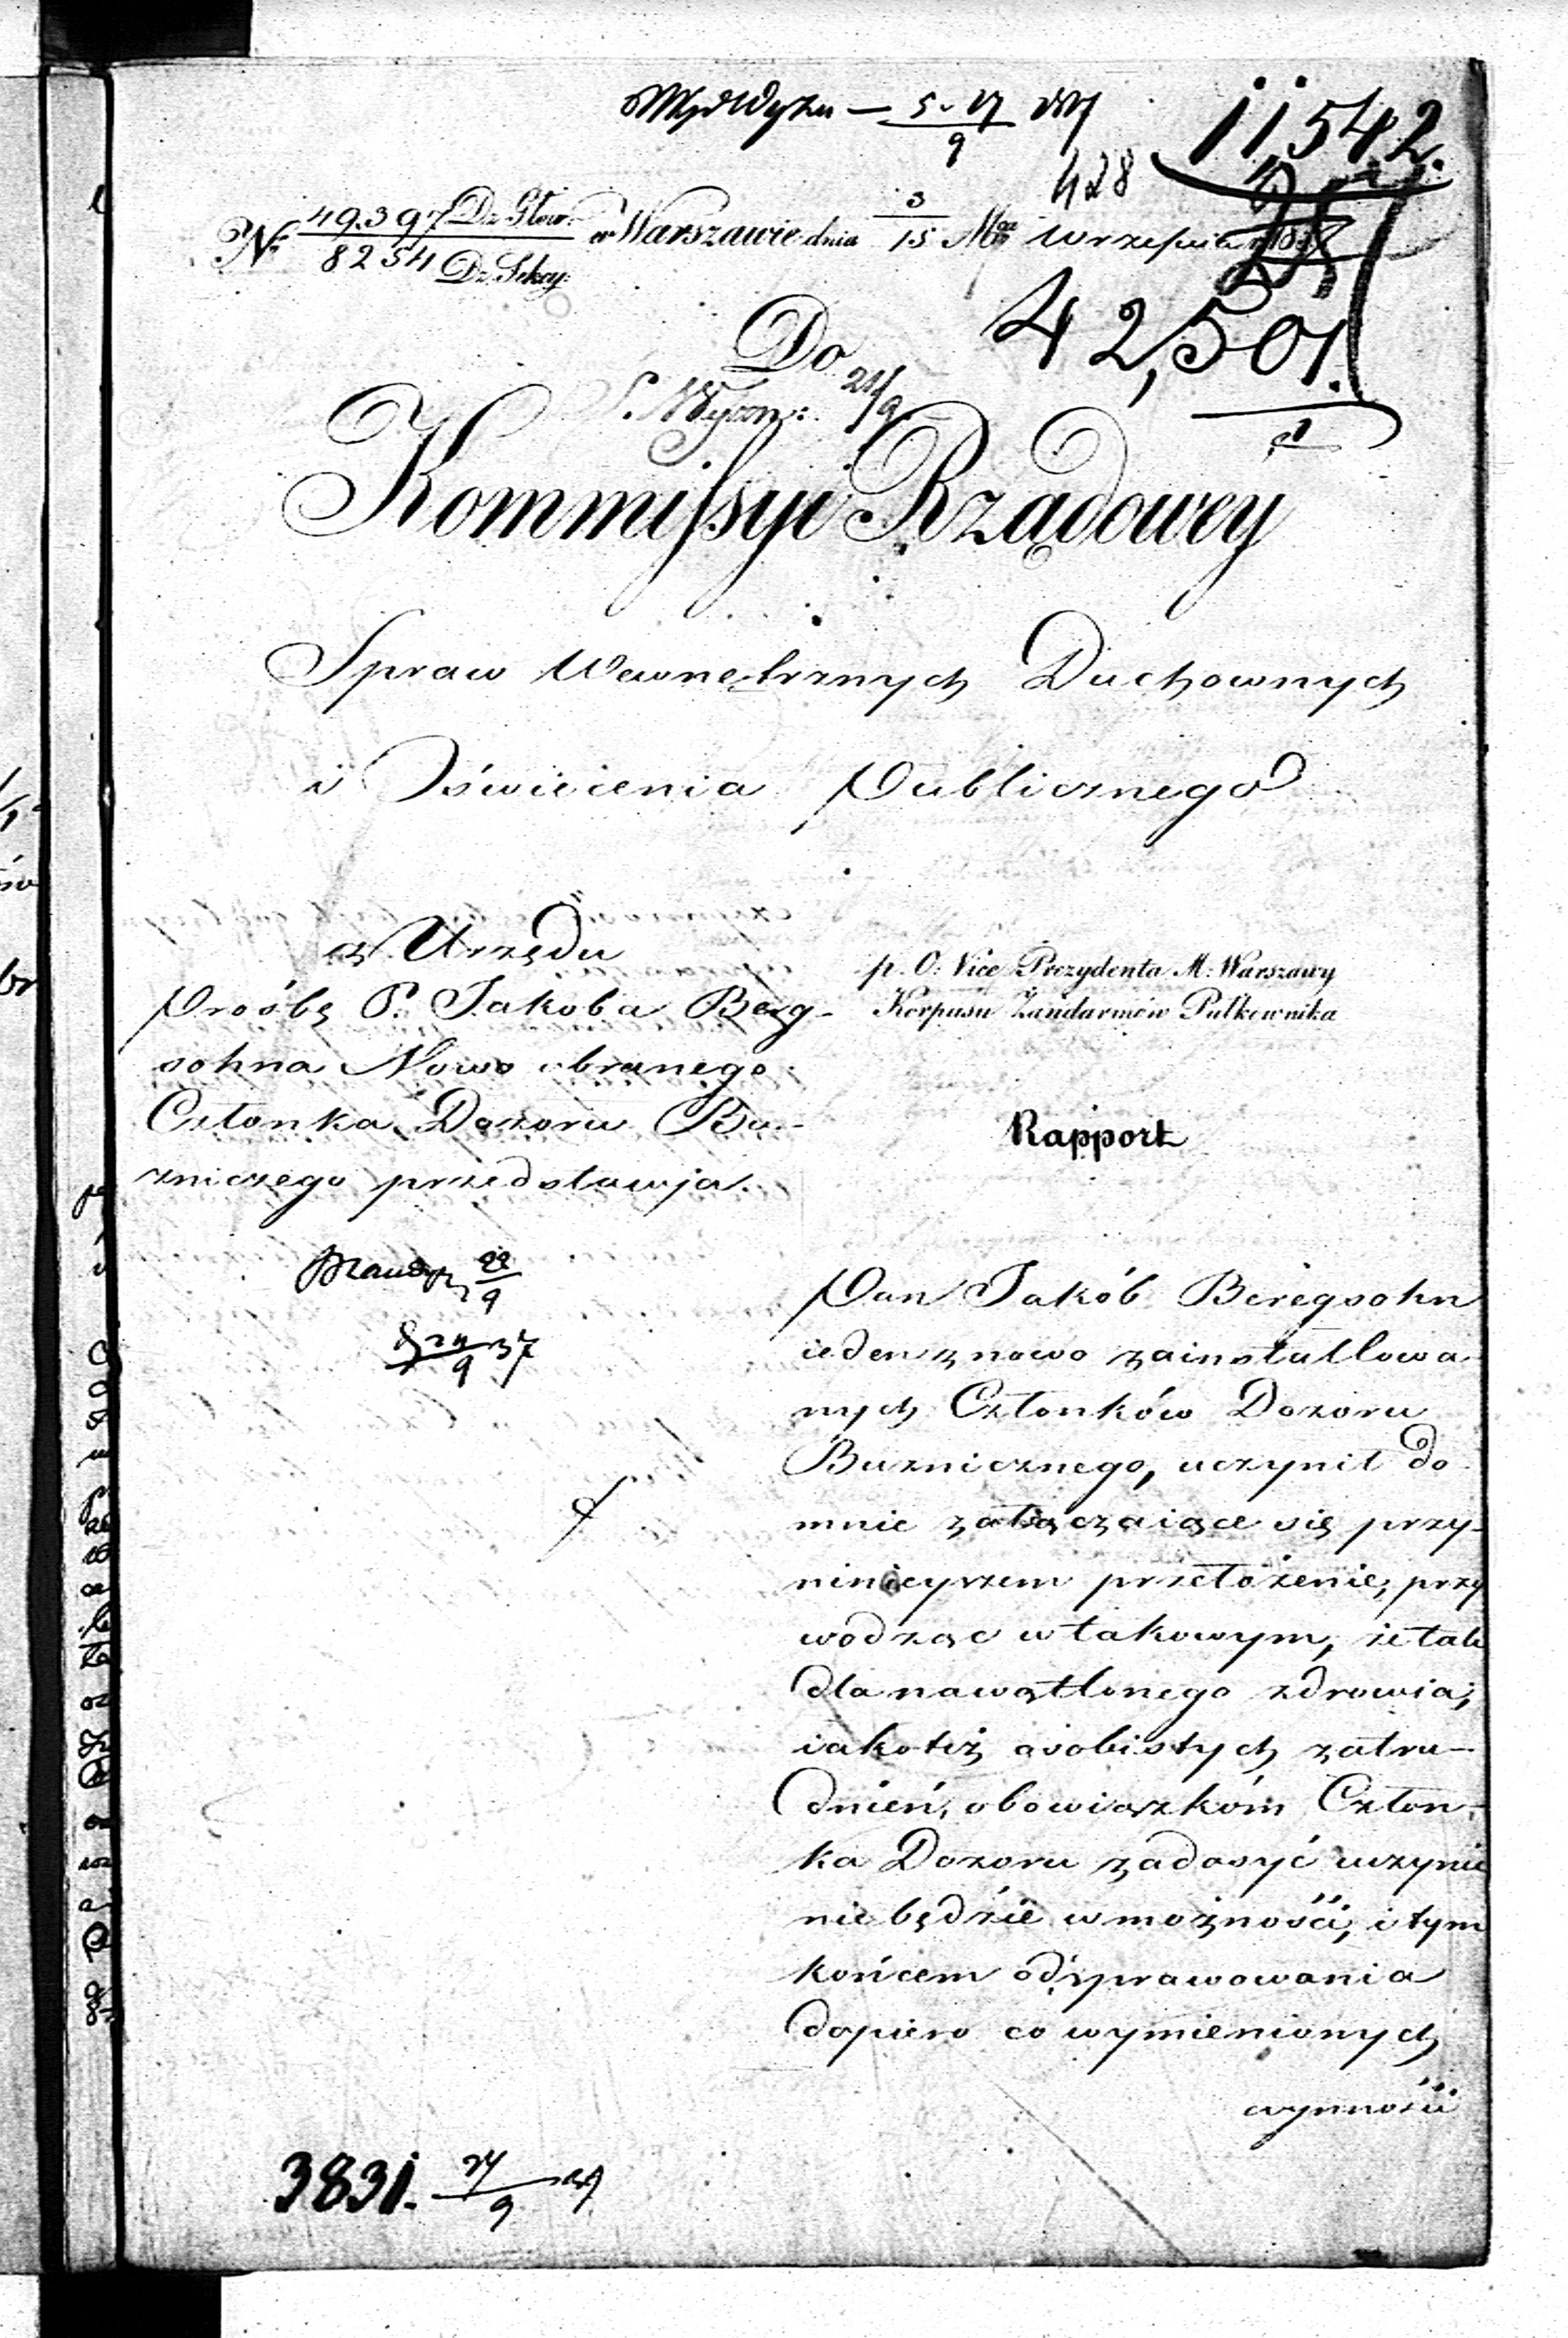 11542.
428
Nº 49.397 Dz. Głów: w Warszawie dnia 3/15 Mca Września
8254 Dz. Sekcy:
42,501.
Do
21/9
Kommissyi Rządowey
Spraw Wewnętrznych Duchownych
i Oświecenia Publicznego
z Urzędu
Prośbę P. Jakoba Berg-
sohna Nowo obranego
Członka Dozoru Bu-
zniczego przedstawja.
22/9
24/9 37
p. O: Vice Prezydenta M: Warszawy
Korpusu Żandarmów Pułkownika
Rapport
Pan Jakób Beregsohn
ieden z nowo zainstallowa
nych Członków Dozoru
Buznicznego, uczynił do
mnie załączaiące się przy
ninieyszem przełożenie, przy
wodząc w takowym, że tak
dla nawątlonego zdrowia,
iako też osobistych zatru-
dnień, obowiązkóm Człon-
ka Dozoru zadosyć uczynić
nie będzie w możności, i tym
końcem od sprawowania
dopiero co wymienionych
czynności
3831. 24/9